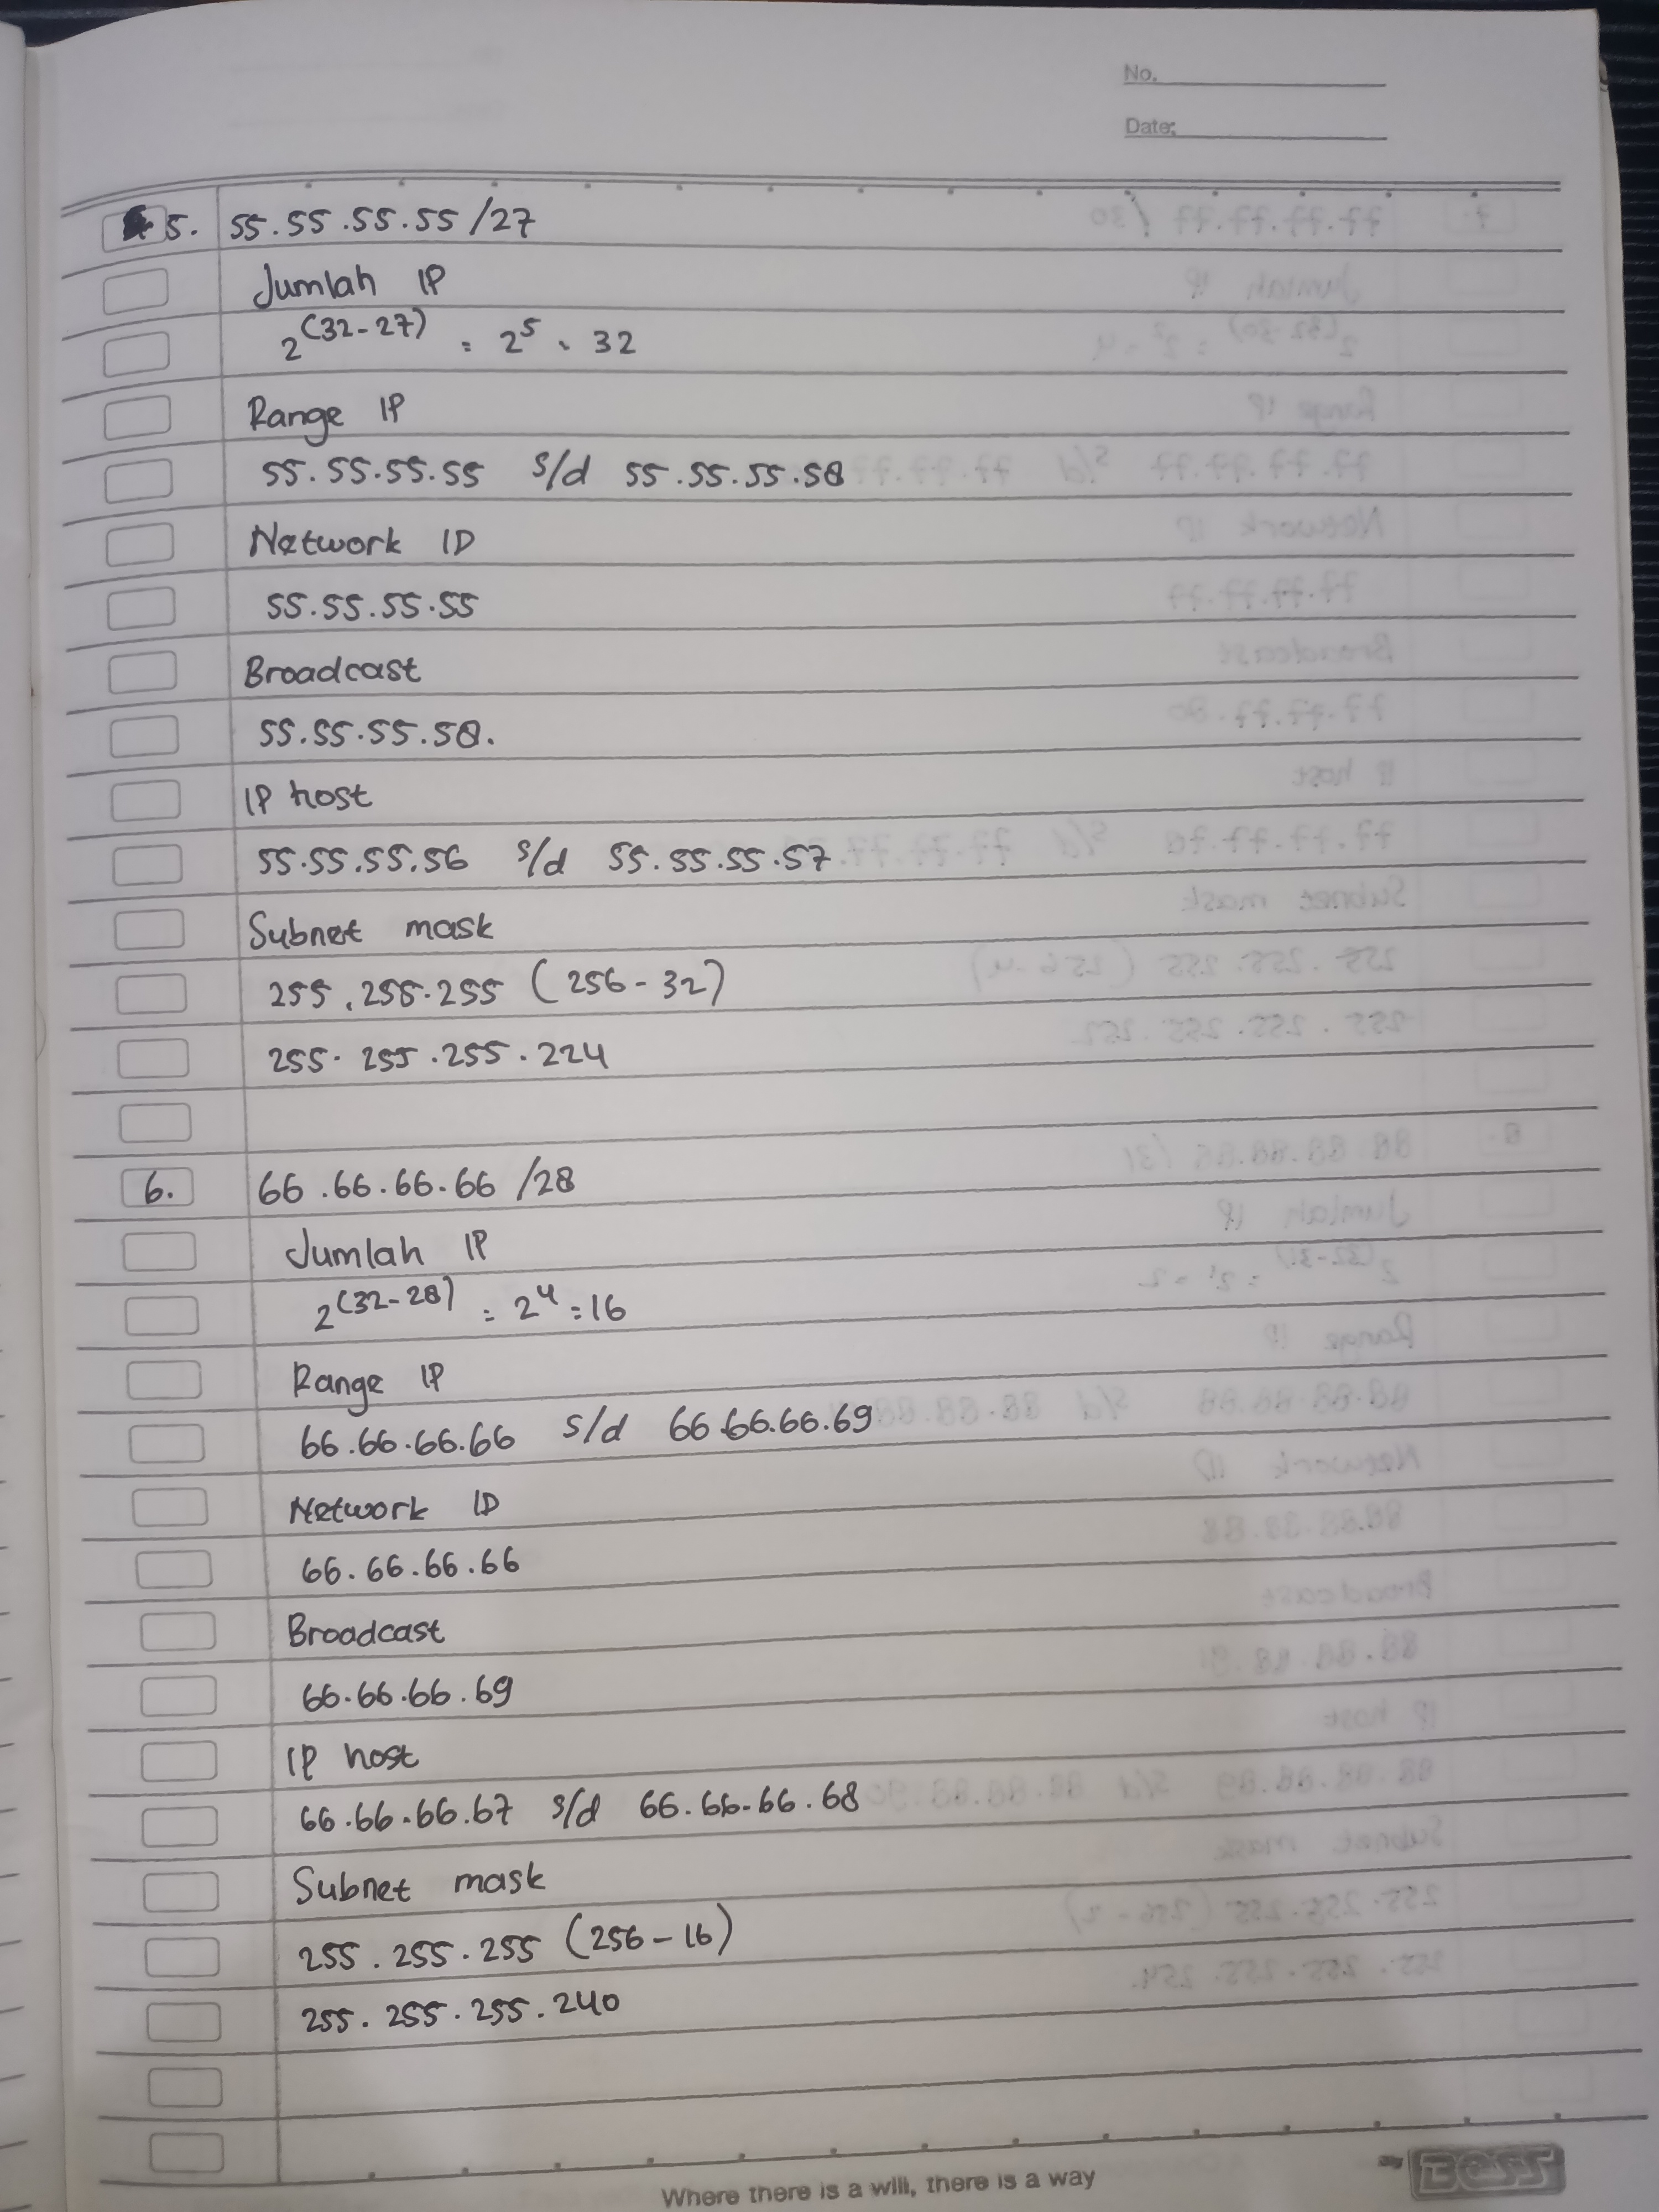 No.
Date:
5. 55.55.55.55 /27
Jumlah IP
2^(32-27) = 2^5 = 32
Range IP
55.55.55.55 s/d 55.55.55.58
Network ID
55.55.55.55
Broadcast
55.55.55.58.
IP host
55.55.55.56 s/d 55.55.55.57
Subnet mask
255.255.255 (256-32)
255.255.255.224
6. 66.66.66.66 /28
Jumlah IP
2^(32-28) = 2^4 = 16
Range IP
66.66.66.66 s/d 66.66.66.69
Network ID
66.66.66.66
Broadcast
66.66.66.69
IP host
66.66.66.67 s/d 66.66.66.68
Subnet mask
255.255.255 (256-16)
255.255.255.240
Where there is a will, there is a way
BOSS